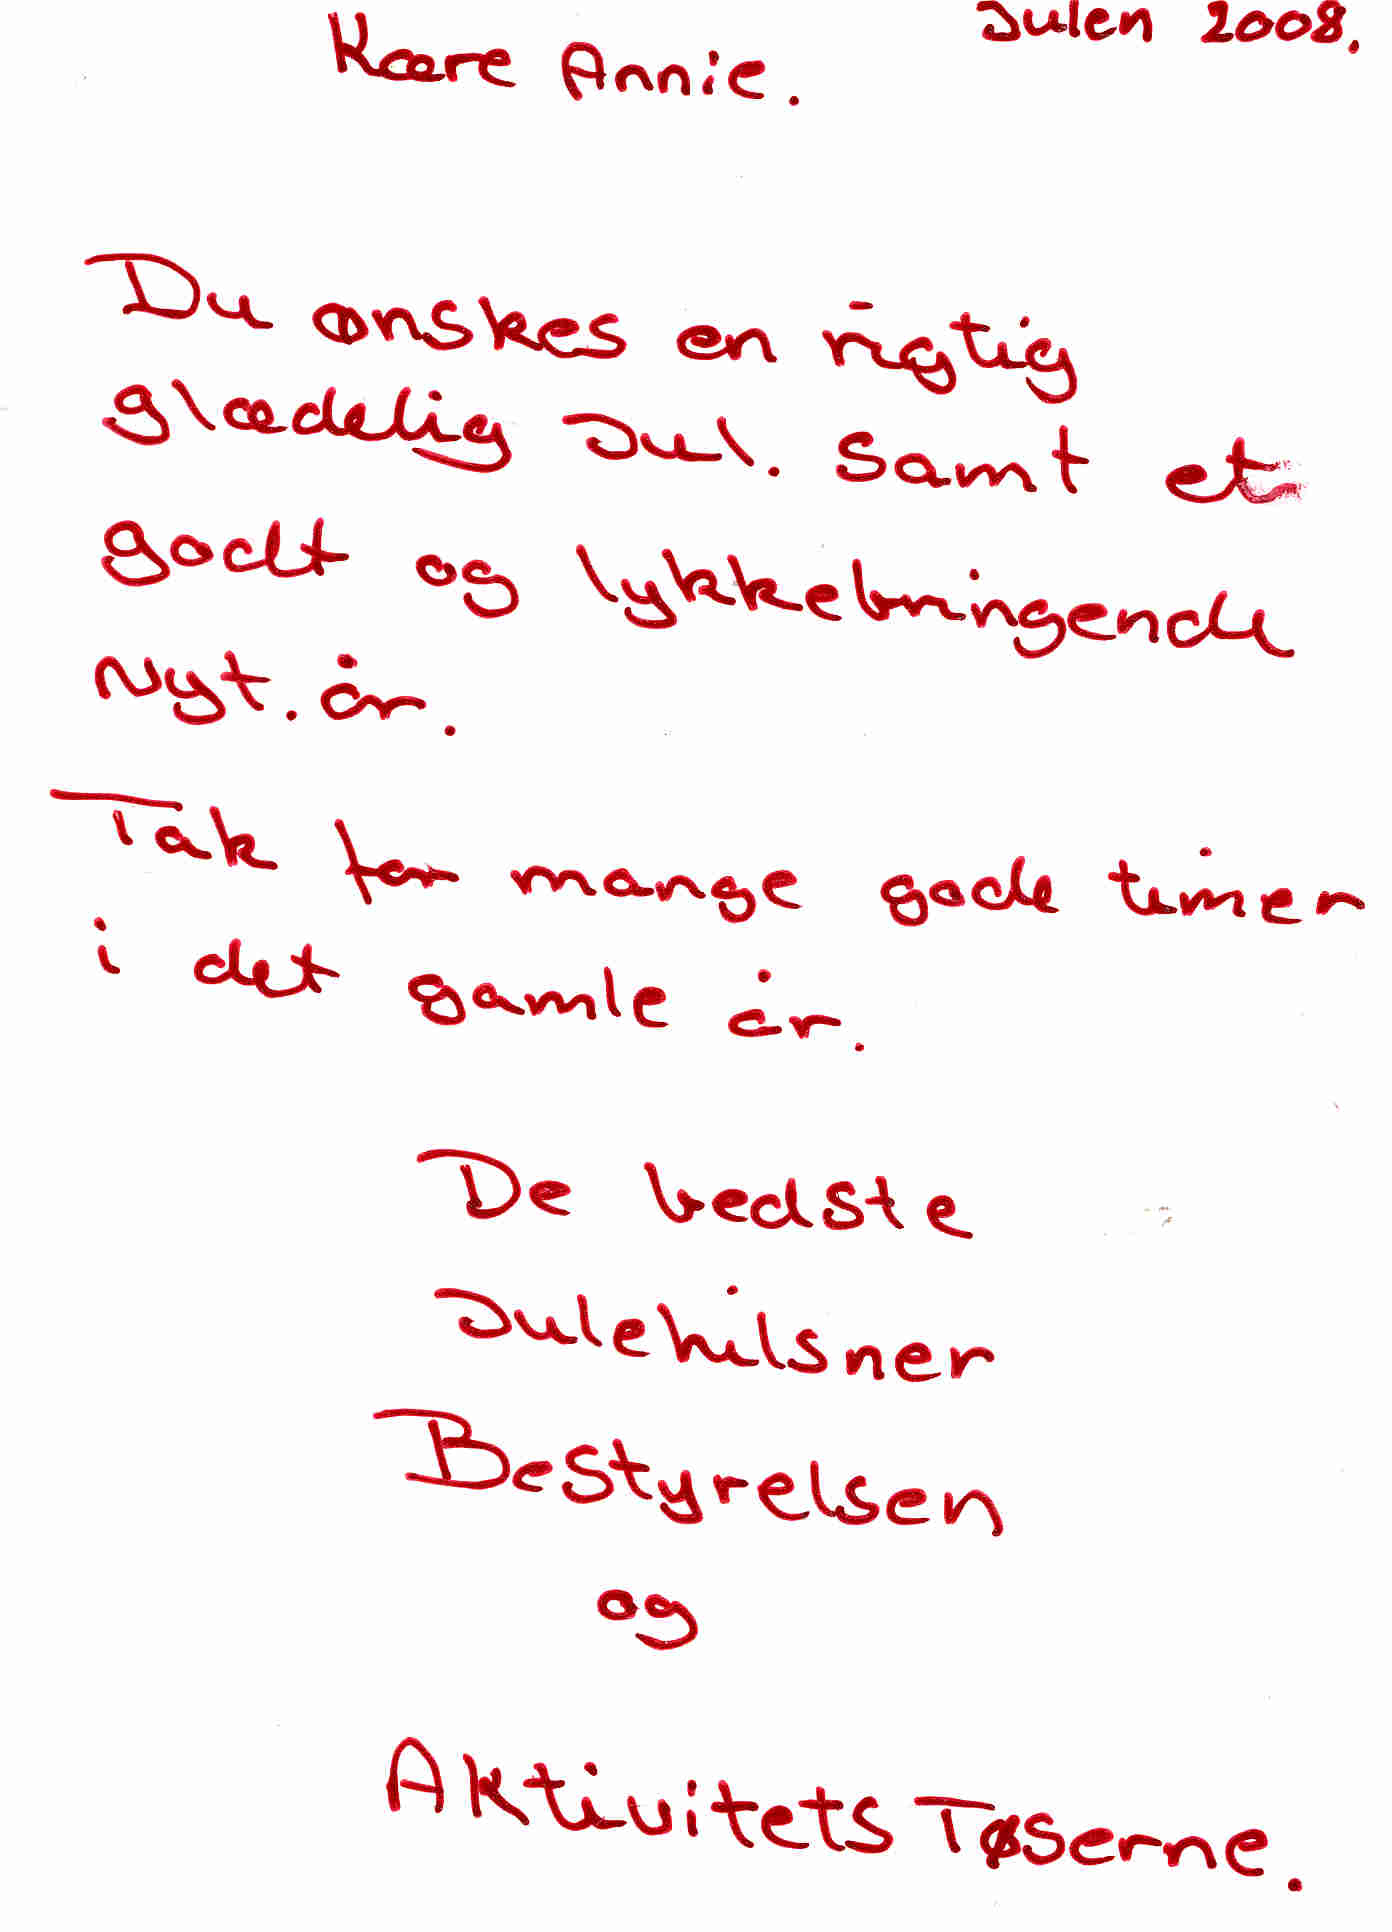 Julen 2008.
Kære Annie.
Du ønskes en rigtig
glædelig Jul. Samt et
godt og lykkebringende
Nyt. år.
Tak for mange gode timer
i det gamle år.
De bedste
Julehilsner
Bestyrelsen
og
Aktivitets Tøserne.